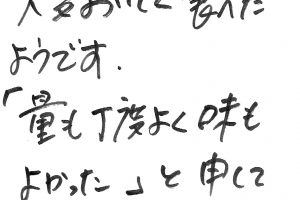 大変おいしく食べた
ようです.
「量も丁度よく味も
よかった」と申して